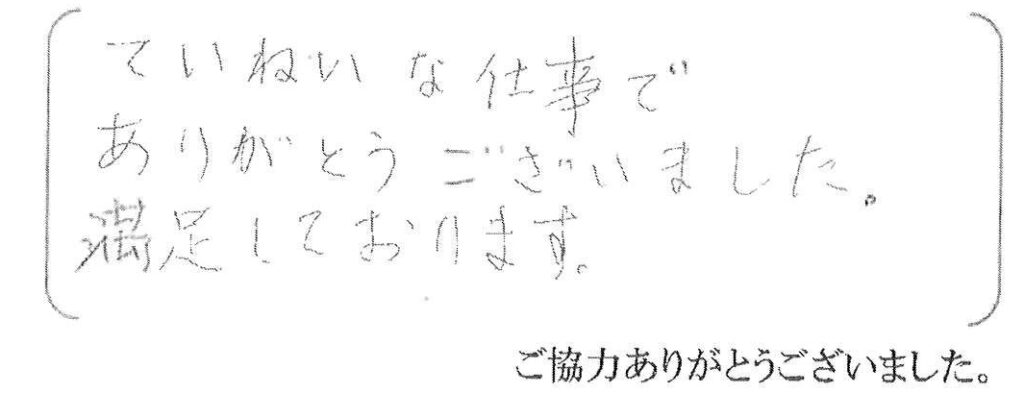 ていねいな仕事で
ありがとうございました。
満足しております。
ご協力ありがとうございました。